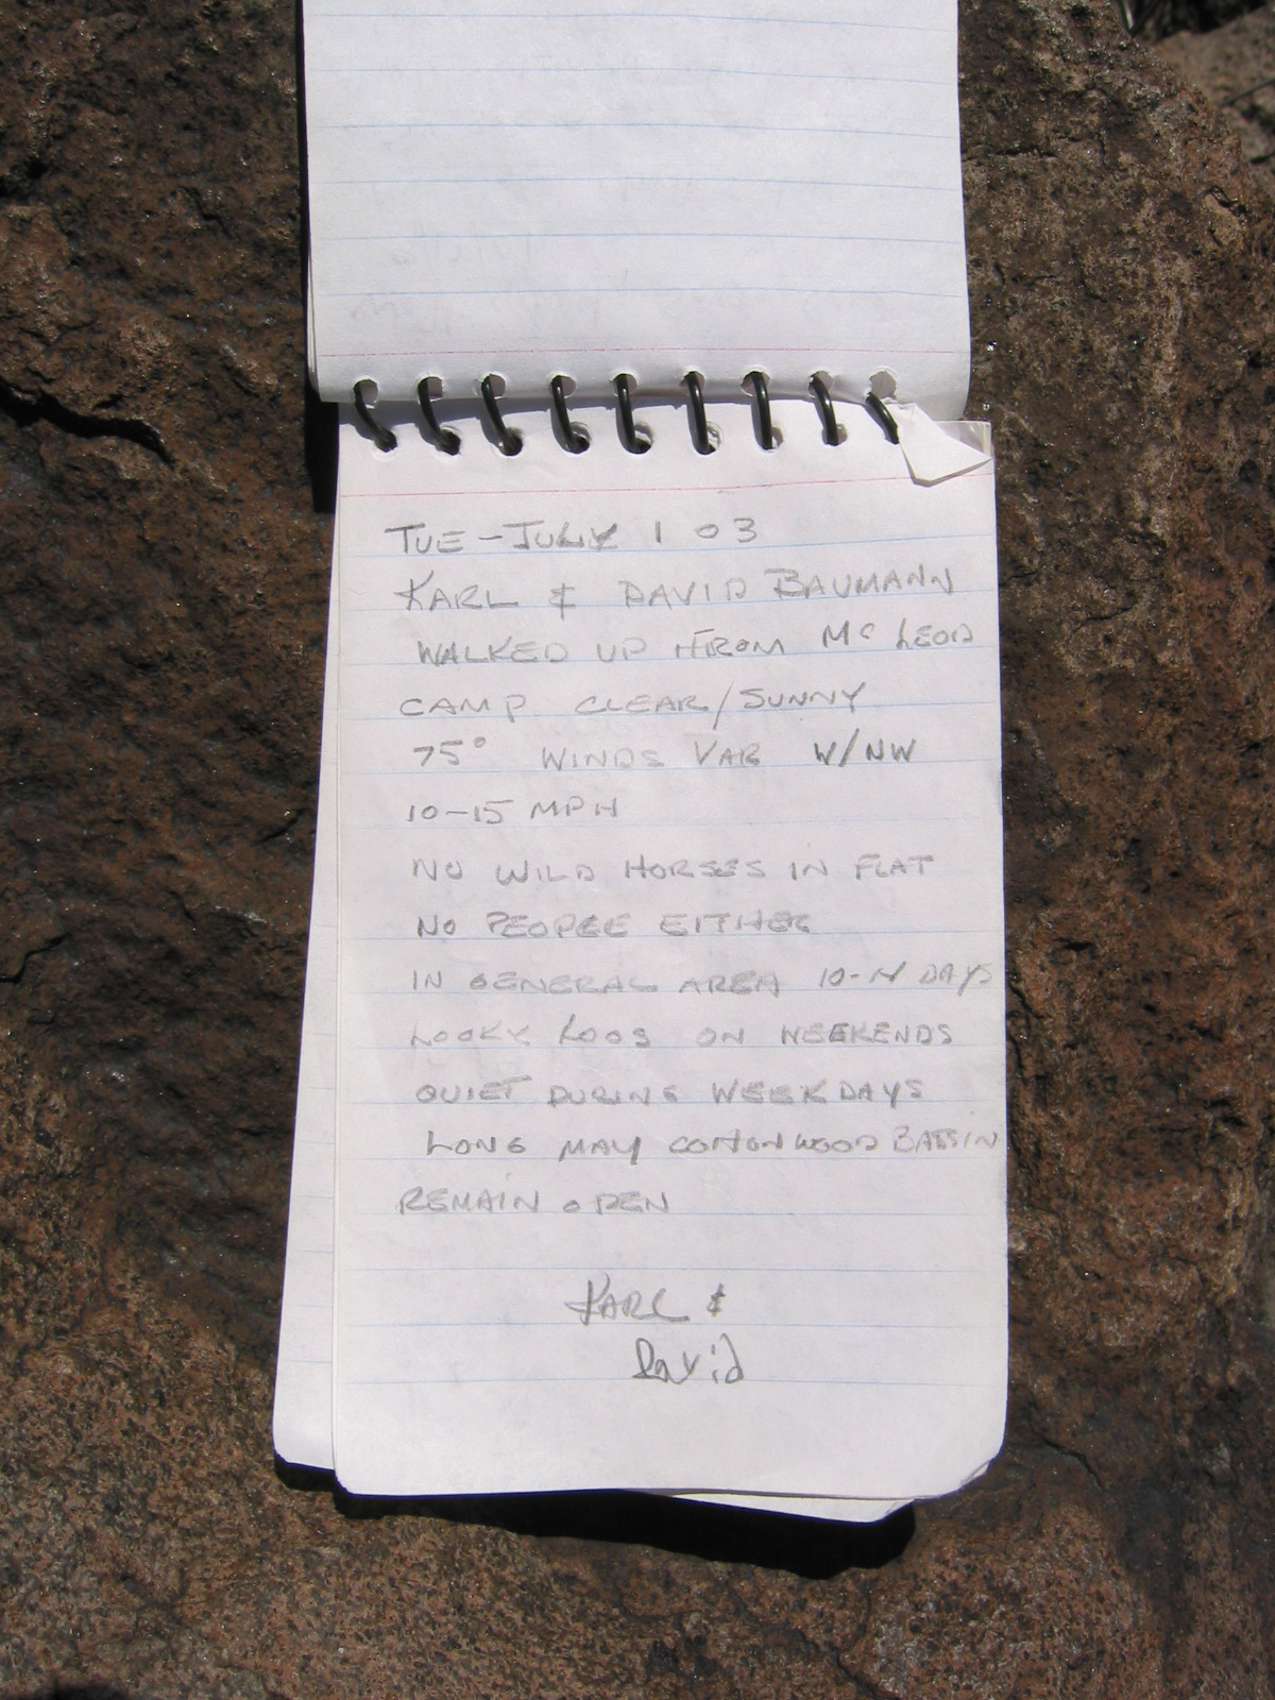 TUE - JULY 1 03
KARL & DAVID BAUMANN
WALKED UP FROM MC LEOD
CAMP CLEAR/SUNNY
75° WINDS VAR W/NW
10-15 MPH
NO WILD HORSES IN FLAT
NO PEOPLE EITHER
IN GENERAL AREA 10-14 DAYS
LOOKY LOOS ON WEEKENDS
QUIET DURING WEEKDAYS
LONG MAY COTTONWOOD BASSIN
REMAIN OPEN
KARL &
David